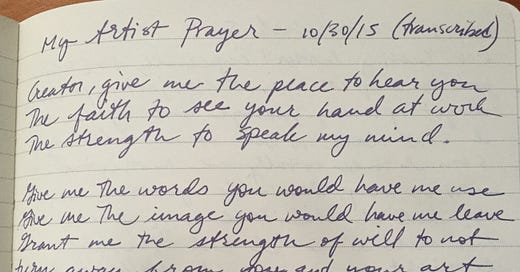 My Artist Prayer - 10/30/15 (transcribed)
Creator, give me the place to hear you
The faith to see your hand at work
The strength to speak my mind.
Give me the words you would have me use
Give me the image you would have me leave
Grant me the strength of will to not
turn away from you and your art